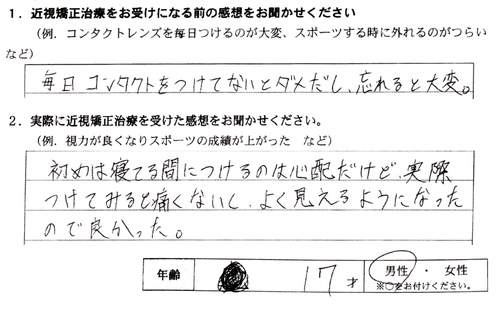 1．近視矯正治療をお受けになる前の感想をお聞かせください
（例．コンタクトレンズを毎日つけるのが大変、スポーツする時に外れるのがつらい
など）
毎日コンタクトをつけてないとダメだし、忘れると大変。
2．実際に近視矯正治療を受けた感想をお聞かせください。
（例．視力が良くなりスポーツの成績が上がった　など）
初めは寝てる間につけるのは心配だけど、実際
つけてみると痛くないし、よく見えるようになった
ので良かった。
年齢　17才　男性・女性
※○をお付けください。